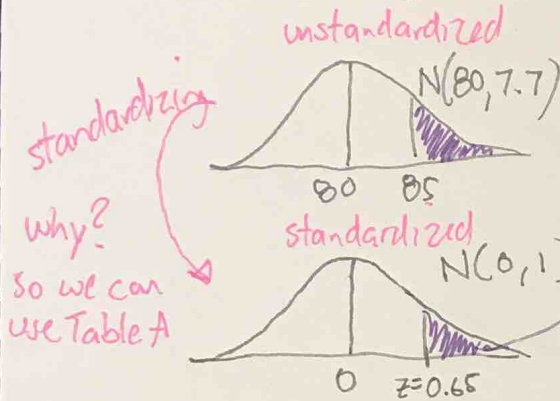 unstandardized
N(80,7.7)
standardizing
80 85
why?
standardized
so we can
N(0,1
use Table A
0 z=0.65